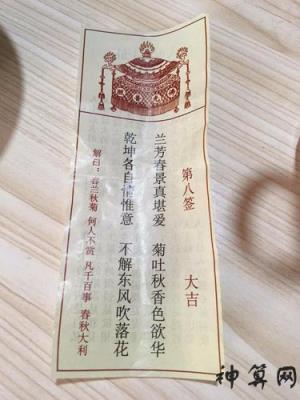 第八签 大吉
兰芳春景真堪爱 菊吐秋香色欲华
乾坤各自情惟意 不解东风吹落花
解曰：春兰秋菊 何人不赏 凡千百事 春秋大利
神算网